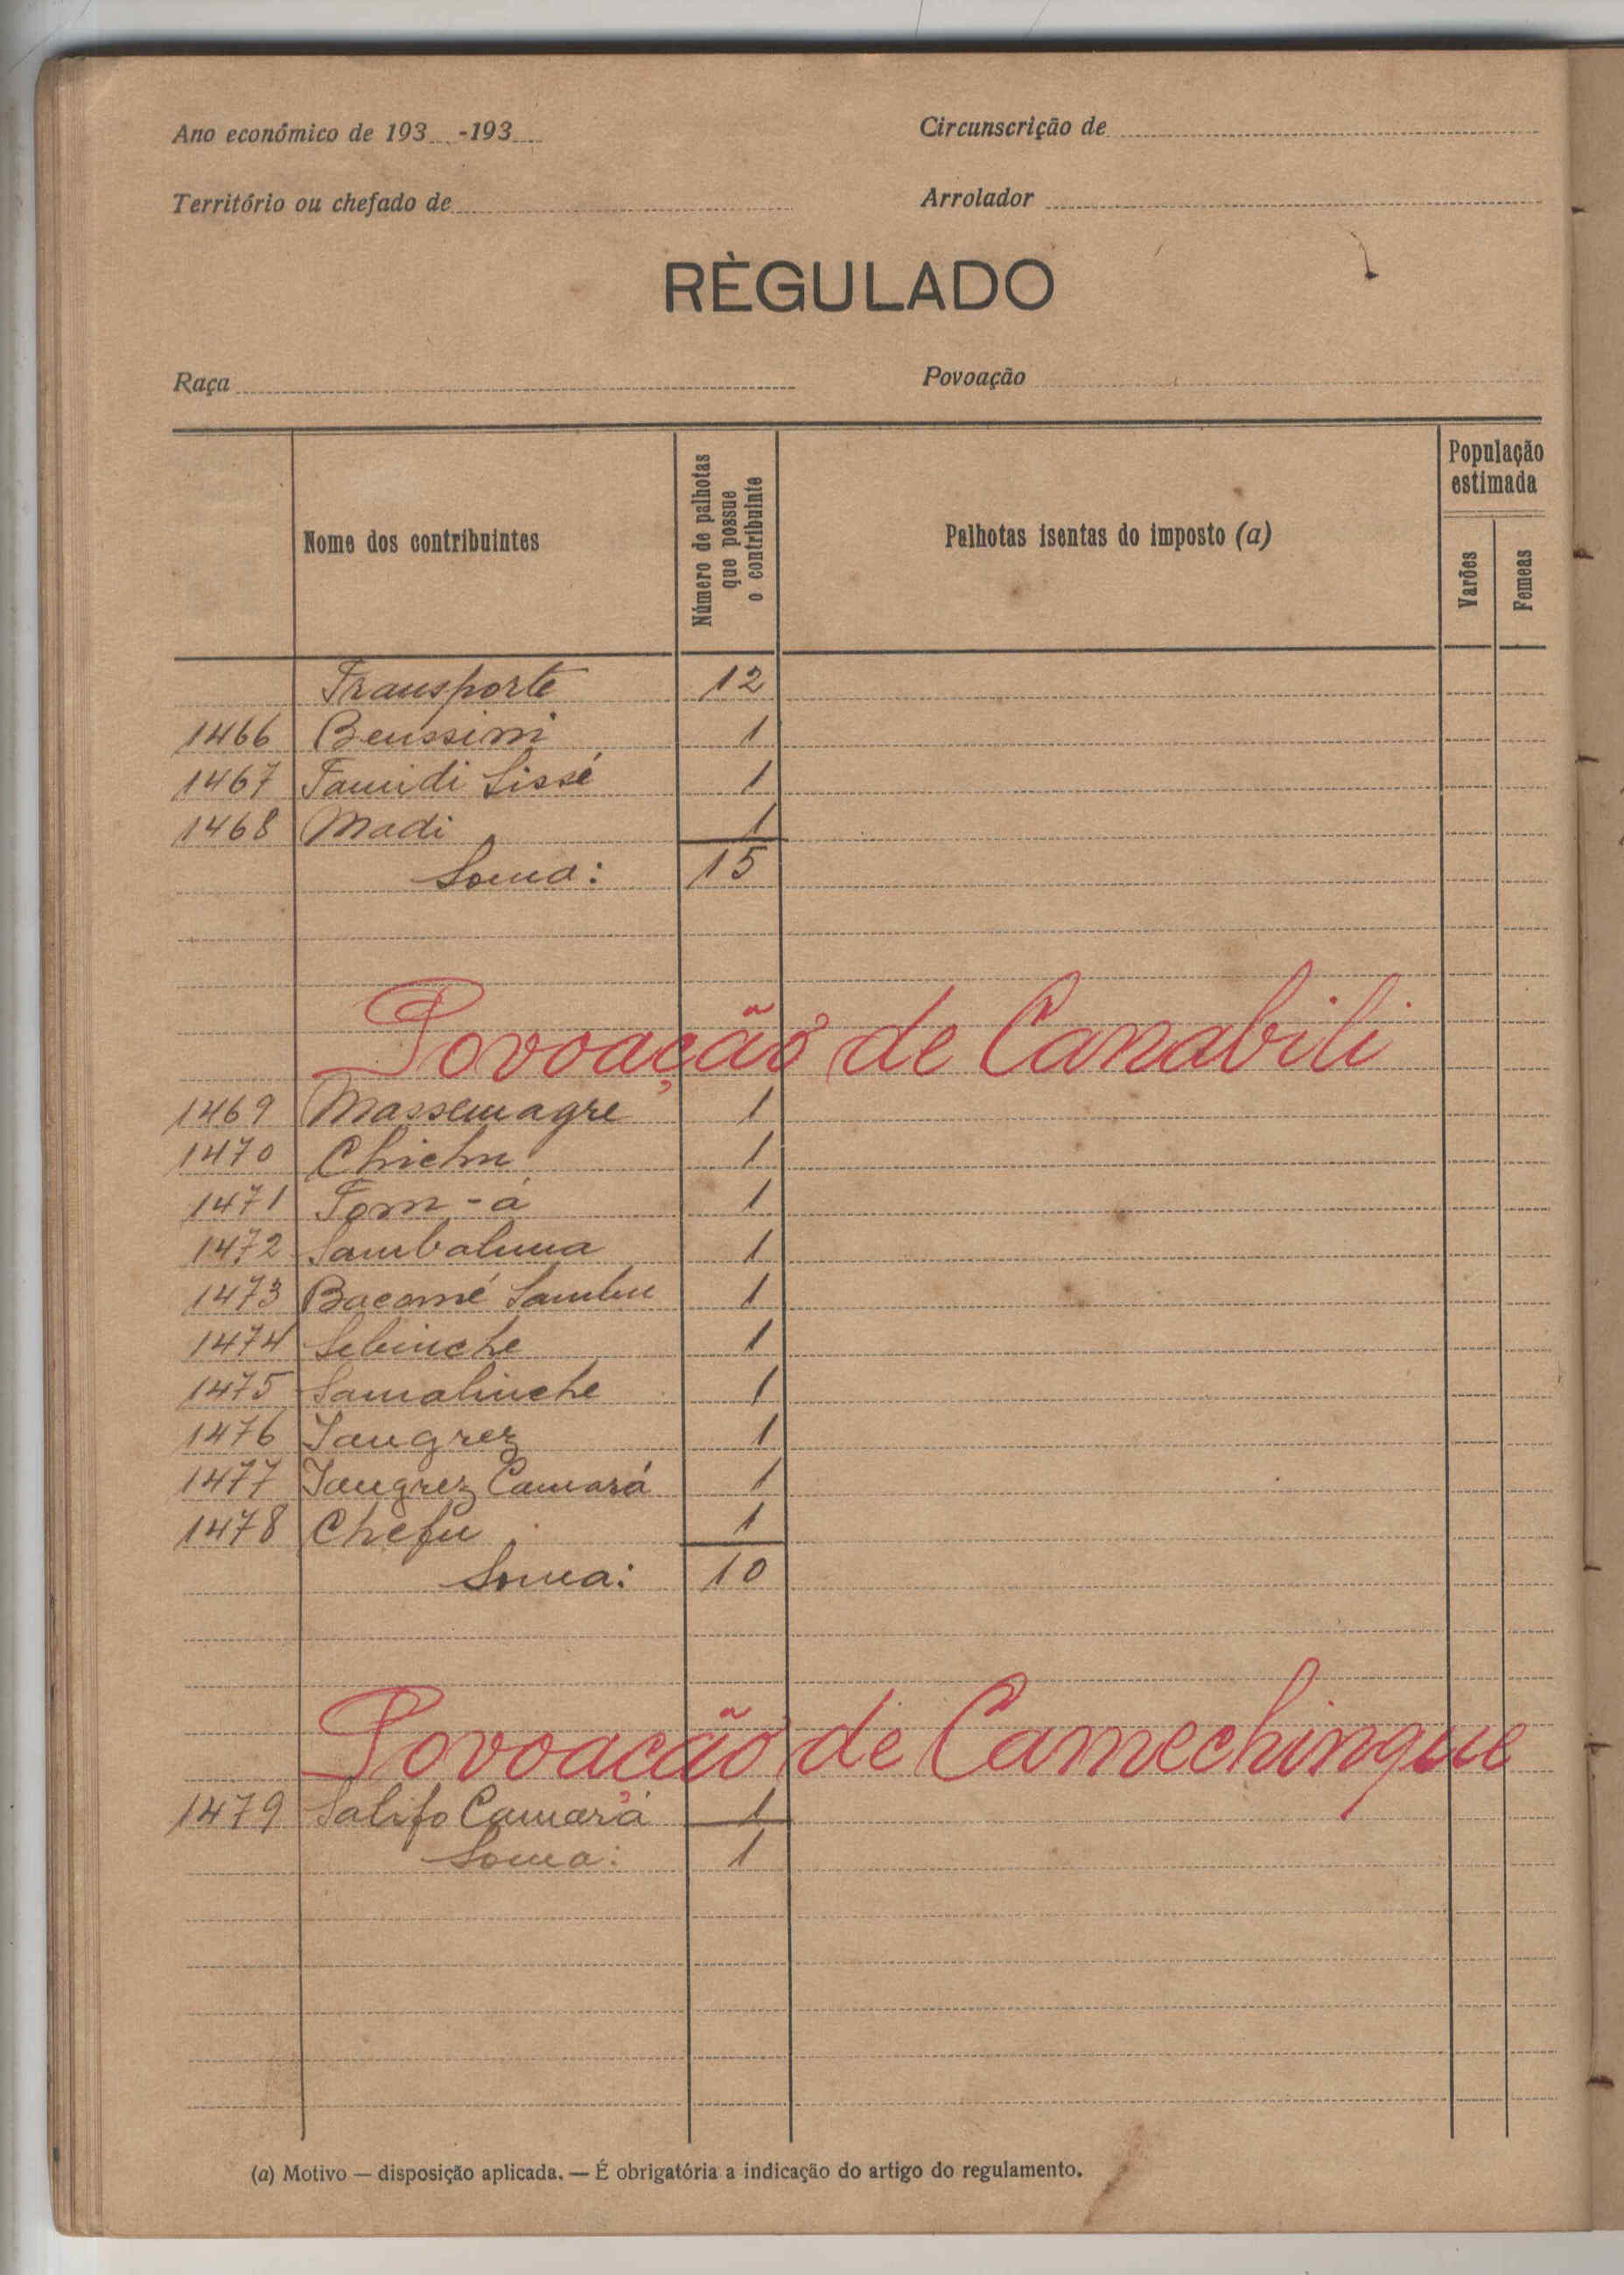 Ano económico de 193 -193
Circunscrição de
Território ou chefado de
Arrolador
RÈGULADO
Raça
Povoação
Nome dos contribuintes
Número de palhotas que possue o contribuinte
Palhotas isentas do imposto (a)
População estimada
Varões
Femeas
Transporte 12
1466 Benssini 1
1467 Famidi Sissé 1
1468 Madi 1
Soma: 15
Povoação de Canabili
1469 Massemagre 1
1470 1
1471 Tom-á 1
1472 1
1473 Bacomé Sambu 1
1474 Sebinche 1
1475 Samalinche 1
1476 Jangrez 1
1477 Jangrez Camará 1
1478 Chefu 1
Soma: 10
Povoação de Camechingue
1479 Salifo Camará 1
Soma: 1
(a) Motivo — disposição aplicada. — É obrigatória a indicação do artigo do regulamento.